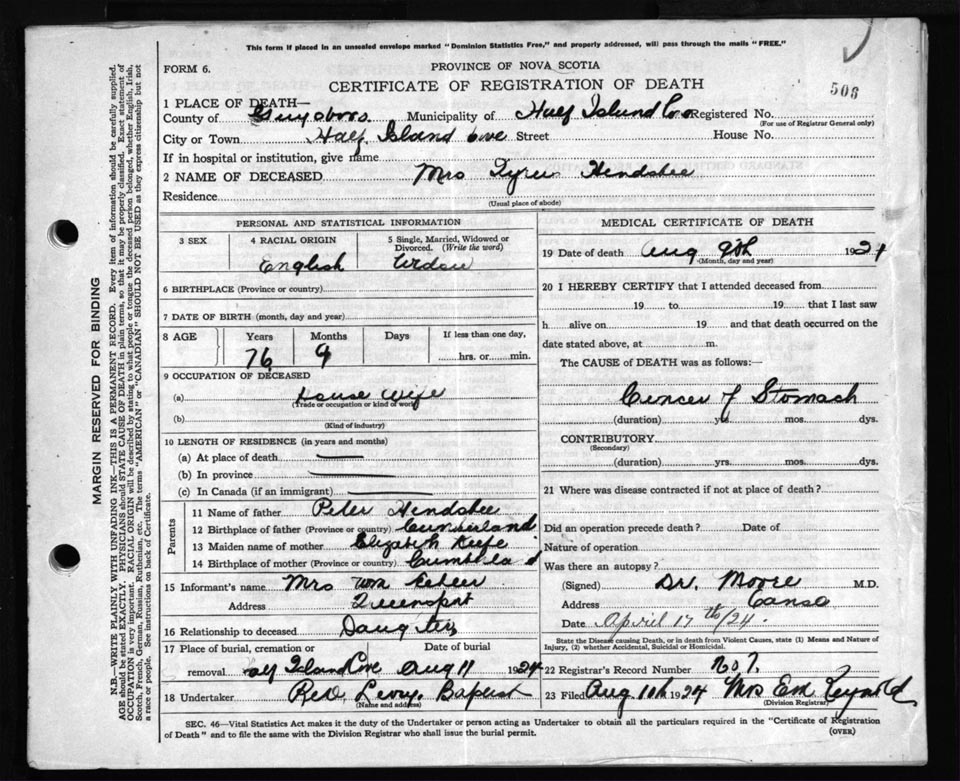 This form if placed in an unsealed envelope marked "Dominion Statistics Free," and properly addressed, will pass through the mails "FREE."
FORM 6.
PROVINCE OF NOVA SCOTIA
CERTIFICATE OF REGISTRATION OF DEATH
506
1 PLACE OF DEATH—
County of Guysboro. Municipality of Half Island Cove Registered No.
(For use of Registrar General only)
City or Town Half Island Cove Street House No.
If in hospital or institution, give name
2 NAME OF DECEASED Mrs Hendsbee
Residence
(Usual place of abode)
PERSONAL AND STATISTICAL INFORMATION
3 SEX 4 RACIAL ORIGIN 5 Single, Married, Widowed or Divorced. (Write the word)
English
6 BIRTHPLACE (Province or country)
7 DATE OF BIRTH (month, day and year)
8 AGE Years Months Days If less than one day,
76 9 hrs. or min.
9 OCCUPATION OF DECEASED
(a) House Wife
(Trade or occupation or kind of work)
(b)
(Kind of industry)
10 LENGTH OF RESIDENCE (in years and months)
(a) At place of death
(b) In province
(c) In Canada (if an immigrant)
Parents
11 Name of father Peter Hendsbee
12 Birthplace of father (Province or country) Cumberland
13 Maiden name of mother Elizabeth Keefe
14 Birthplace of mother (Province or country)
15 Informant's name Mrs Wm
Address Queensport
16 Relationship to deceased Daugter
17 Place of burial, cremation or
removal alf Island Cove Aug 11 1924
18 Undertaker Rev. Levy. Baptist
(Name and address)
MEDICAL CERTIFICATE OF DEATH
19 Date of death Aug 9th 1924
(Month, day and year)
20 I HEREBY CERTIFY that I attended deceased from
19 to 19 that I last saw
h alive on 19 and that death occurred on the
date stated above, at m.
The CAUSE of DEATH was as follows:—
Cancer of Stomach
(duration) yrs. mos. dys.
CONTRIBUTORY
(Secondary)
(duration) yrs. mos. dys.
21 Where was disease contracted if not at place of death?
Did an operation precede death? Date of
Nature of operation
Was there an autopsy?
(Signed) Dr. Moore M.D.
Address Canso
Date April 17th/24.
State the Disease causing Death, or in death from Violent Causes, state (1) Means and Nature of
Injury, (2) whether Accidental, Suicidal or Homicidal.
22 Registrar's Record Number No 7.
23 Filed Aug 10th 1924 Mrs Em Reynold
(Division Registrar)
SEC. 46—Vital Statistics Act makes it the duty of the Undertaker or person acting as Undertaker to obtain all the particulars required in the "Certificate of Registration
of Death" and to file the same with the Division Registrar who shall issue the burial permit.
(OVER)
MARGIN RESERVED FOR BINDING
N.B.—WRITE PLAINLY WITH UNFADING INK—THIS IS A PERMANENT RECORD. Every item of information should be carefully supplied.
AGE should be stated EXACTLY. PHYSICIANS should STATE CAUSE OF DEATH in plain terms, so that it may be properly classified. Exact statement of
OCCUPATION is very important. RACIAL ORIGIN will be described by stating to what people or tongue the deceased person belonged, whether English, Irish,
Scotch, French, German, Russian, Ruthenian, etc. The terms "AMERICAN" or "CANADIAN" SHOULD NOT BE USED as they express citizenship but not
a race or people. See instructions on back of Certificate.